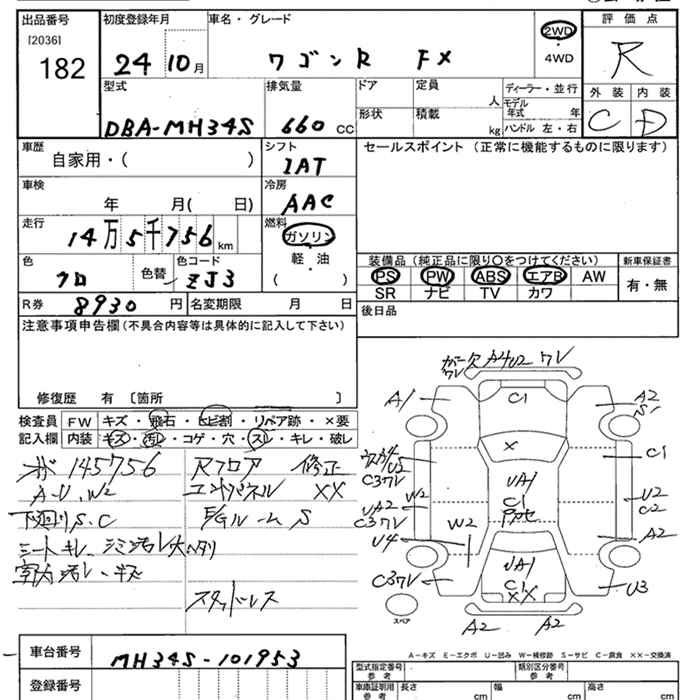 出品番号
[2036]
182
初度登録年月
24 10月
車名・グレード
ワゴンR FX
2WD
・
4WD
評価点
R
外装 内装
C D
型式
DBA-MH34S
排気量
660 CC
ドア
形状
定員
人
積載
kg
ディーラー・並行
モデル年式 年
ハンドル 左・右
車歴
自家用・( )
シフト
IAT
セールスポイント (正常に機能するものに限ります)
車検
年 月( 日)
冷房
AAC
走行
14万5千756 km
燃料
ガソリン
軽・油
( )
色
クロ
色替
色コード
ZJ3
装備品 (純正品に限り○をつけてください)
PS PW ABS エアB AW
SR ナビ TV カワ
新車保証書
有・無
R券
8930 円
名変期限 月 日
後日品
注意事項申告欄 (不具合内容等は具体的に記入して下さい)
修復歴 有 〔箇所 〕
検査員記入欄
FW キズ・飛石・ヒビ割・リペア跡・×要
内装 キズ・汚レ・コゲ・穴・スレ・キレ・破レ
145756
A-U、W2
下廻りS、C
シートキレ、シミ汚レ大
室内汚レ・キズ
Rフロア 修正
エンドパネル XX
F/Gルーム S
スタッドレス
ガー欠 A4U2 ワレ
ワレ
A1
C1
A2
S1
C1
X
UA1
C1
U2
C37レ
W2
UA2
C37レ
U4
W2
U2
C2
A2
UA1
C1
XX
C37レ
U3
A2 A2
スペア
A-キズ E-エクボ U-凹み W-補修跡 S-サビ C-腐食 XX-交換済
車台番号
MH34S-101953
登録番号
型式指定番号
参考
類別区分番号
参考
車庫証明用
参考
長さ cm
幅 cm
高さ cm